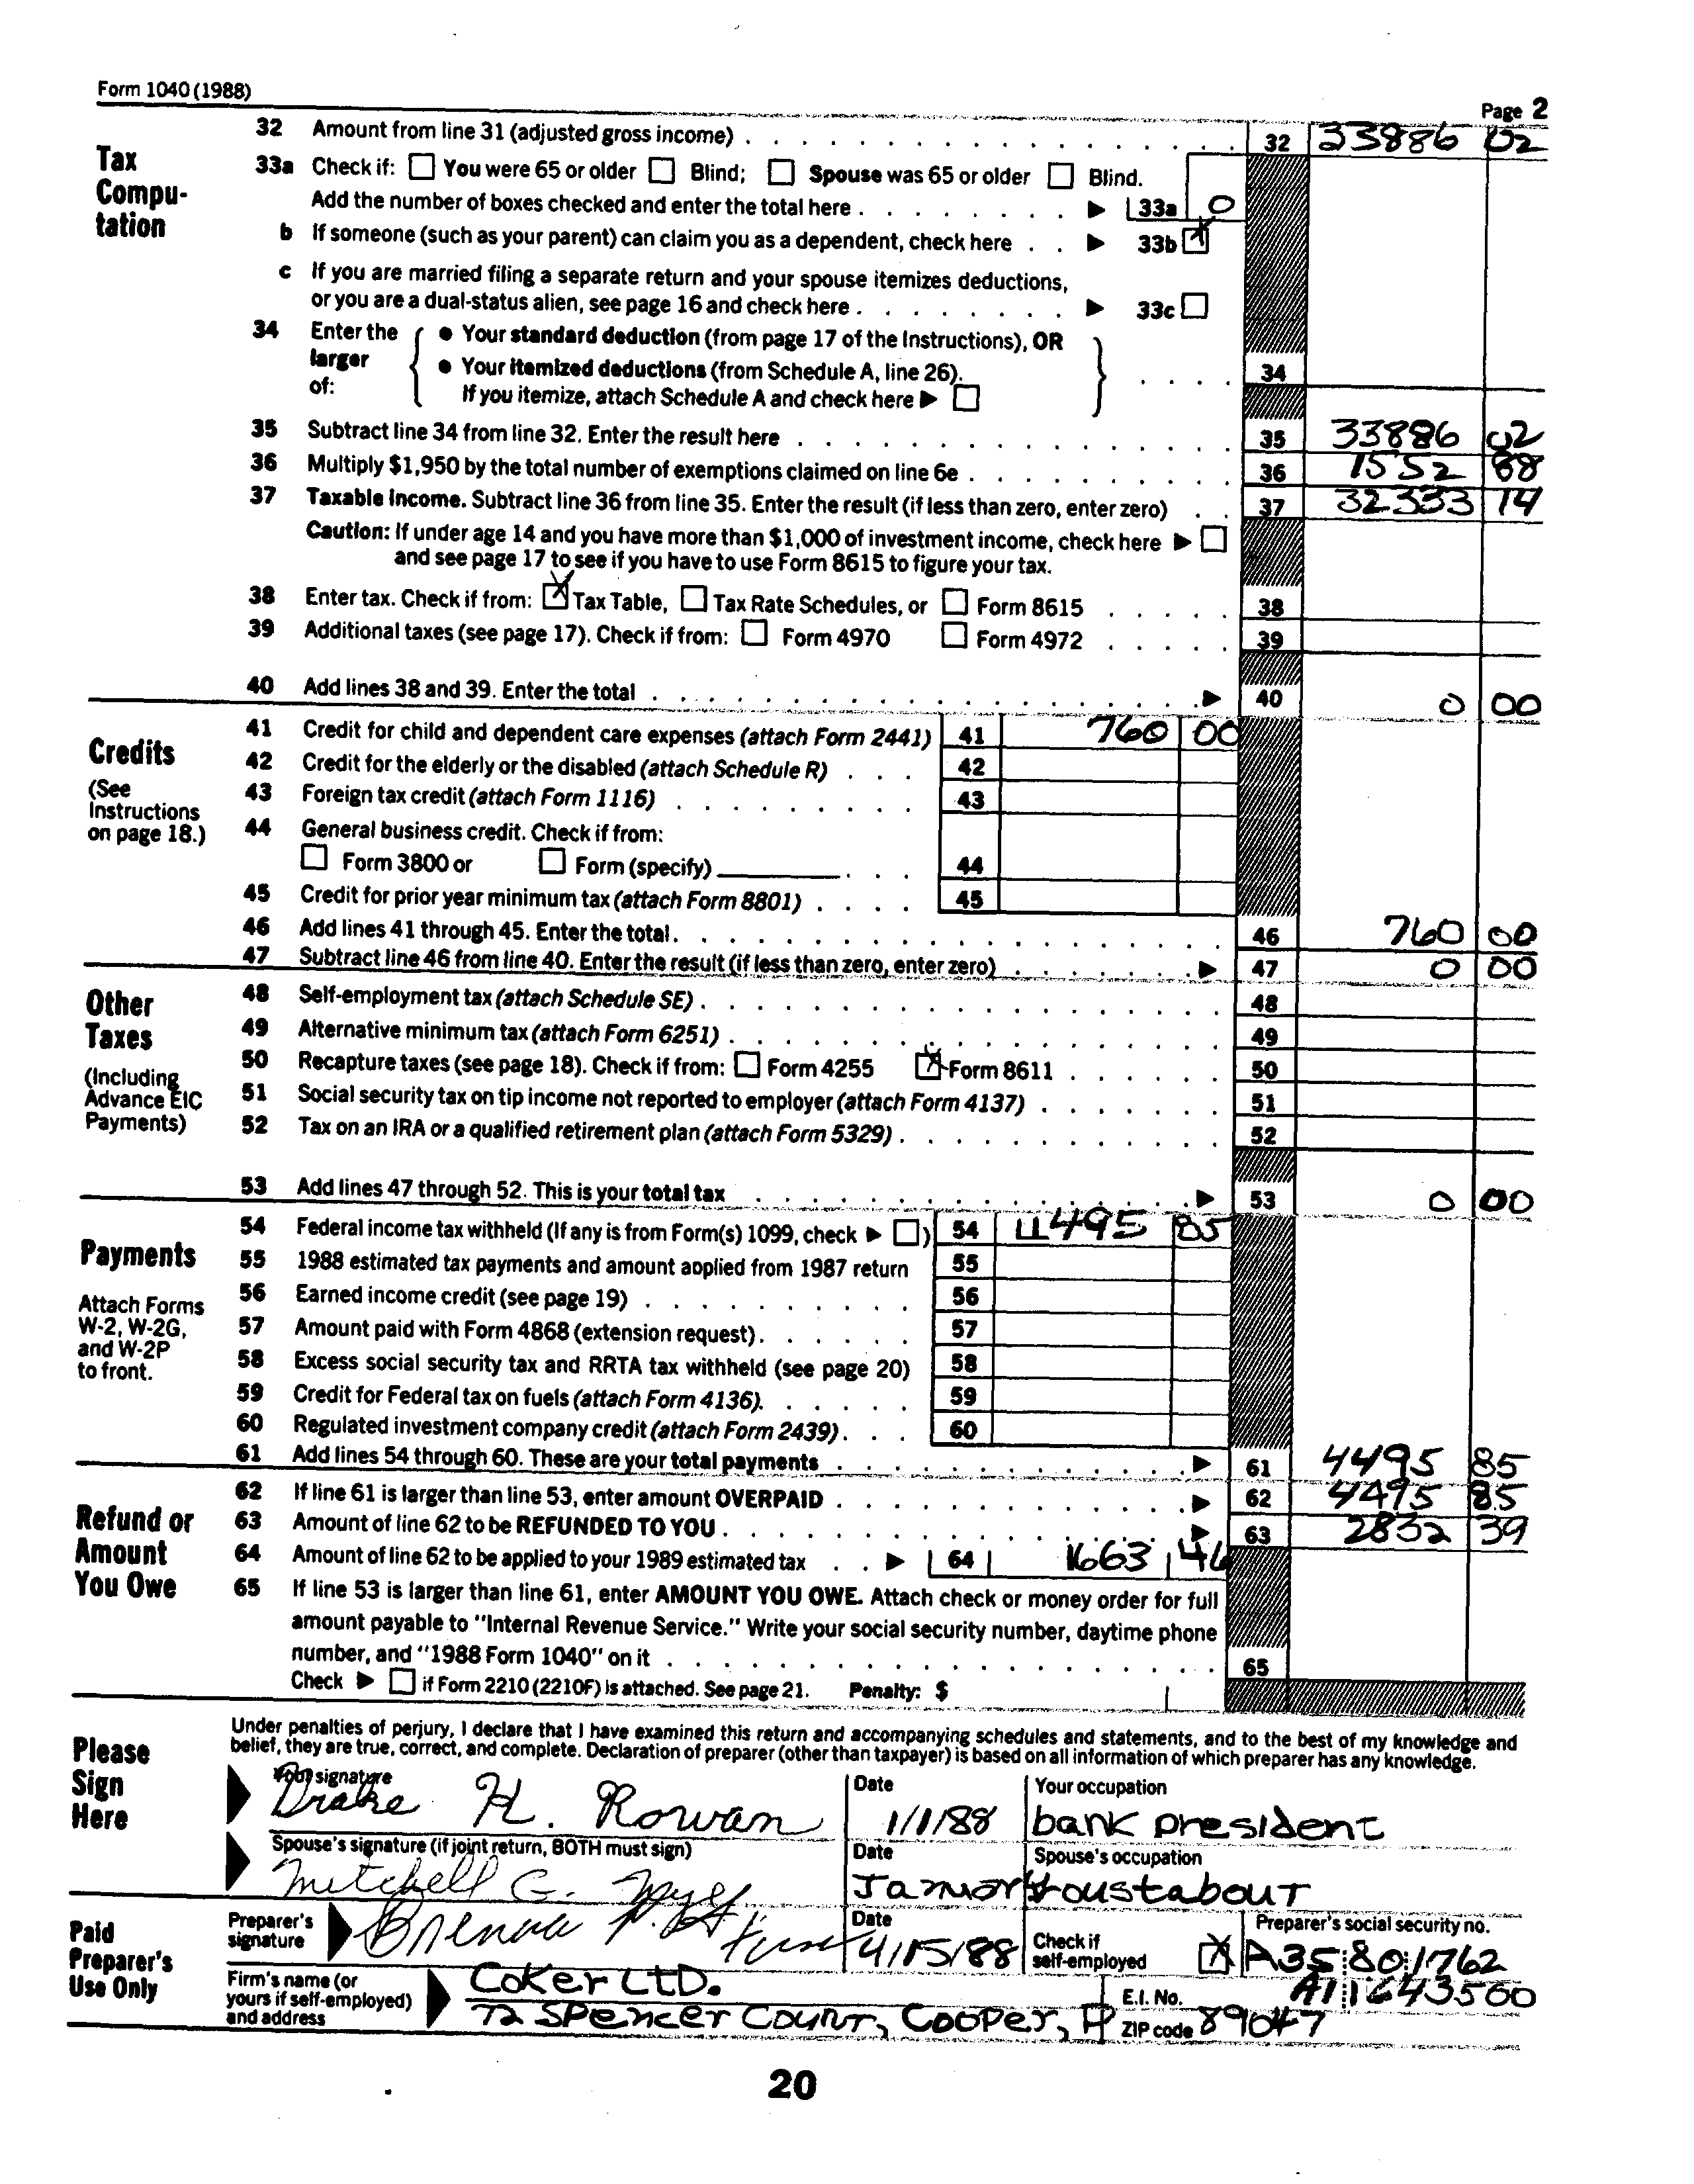 Form 1040 (1988)
Page 2
Tax Compu- tation
32 Amount from line 31 (adjusted gross income) 32 33886 02
33a Check if: You were 65 or older Blind; Spouse was 65 or older Blind.
Add the number of boxes checked and enter the total here 33a 0
b If someone (such as your parent) can claim you as a dependent, check here 33b X
c If you are married filing a separate return and your spouse itemizes deductions,
or you are a dual-status alien, see page 16 and check here 33c
34 Enter the larger of: • Your standard deduction (from page 17 of the Instructions), OR
• Your itemized deductions (from Schedule A, line 26).
If you itemize, attach Schedule A and check here 34
35 Subtract line 34 from line 32. Enter the result here 35 33886 02
36 Multiply $1,950 by the total number of exemptions claimed on line 6e 36 1552 88
37 Taxable income. Subtract line 36 from line 35. Enter the result (if less than zero, enter zero) 37 32333 14
Caution: If under age 14 and you have more than $1,000 of investment income, check here
and see page 17 to see if you have to use Form 8615 to figure your tax.
38 Enter tax. Check if from: X Tax Table, Tax Rate Schedules, or Form 8615 38
39 Additional taxes (see page 17). Check if from: Form 4970 Form 4972 39
40 Add lines 38 and 39. Enter the total 40 0 00
Credits
(See Instructions on page 18.)
41 Credit for child and dependent care expenses (attach Form 2441) 41 760 00
42 Credit for the elderly or the disabled (attach Schedule R) 42
43 Foreign tax credit (attach Form 1116) 43
44 General business credit. Check if from:
Form 3800 or Form (specify) 44
45 Credit for prior year minimum tax (attach Form 8801) 45
46 Add lines 41 through 45. Enter the total 46 760 00
47 Subtract line 46 from line 40. Enter the result (if less than zero, enter zero) 47 0 00
Other Taxes
(Including Advance EIC Payments)
48 Self-employment tax (attach Schedule SE) 48
49 Alternative minimum tax (attach Form 6251) 49
50 Recapture taxes (see page 18). Check if from: Form 4255 X Form 8611 50
51 Social security tax on tip income not reported to employer (attach Form 4137) 51
52 Tax on an IRA or a qualified retirement plan (attach Form 5329) 52
53 Add lines 47 through 52. This is your total tax 53 0 00
Payments
Attach Forms W-2, W-2G, and W-2P to front.
54 Federal income tax withheld (If any is from Form(s) 1099, check ) 54 495 85
55 1988 estimated tax payments and amount applied from 1987 return 55
56 Earned income credit (see page 19) 56
57 Amount paid with Form 4868 (extension request) 57
58 Excess social security tax and RRTA tax withheld (see page 20) 58
59 Credit for Federal tax on fuels (attach Form 4136) 59
60 Regulated investment company credit (attach Form 2439) 60
61 Add lines 54 through 60. These are your total payments 61 4495 85
Refund or Amount You Owe
62 If line 61 is larger than line 53, enter amount OVERPAID 62 4495 85
63 Amount of line 62 to be REFUNDED TO YOU 63 2832 39
64 Amount of line 62 to be applied to your 1989 estimated tax 64 1663 46
65 If line 53 is larger than line 61, enter AMOUNT YOU OWE. Attach check or money order for full
amount payable to "Internal Revenue Service." Write your social security number, daytime phone
number, and "1988 Form 1040" on it 65
Check if Form 2210 (2210F) is attached. See page 21. Penalty: $
Please Sign Here
Under penalties of perjury, I declare that I have examined this return and accompanying schedules and statements, and to the best of my knowledge and
belief, they are true, correct, and complete. Declaration of preparer (other than taxpayer) is based on all information of which preparer has any knowledge.
Your signature Date Your occupation
Drake H. Rowan 1/1/88 bank president
Spouse's signature (if joint return, BOTH must sign) Date Spouse's occupation
Mitchell G. roustabout
Paid Preparer's Use Only
Preparer's signature Brenda P. Date 4/15/88 Check if self-employed X Preparer's social security no. A35 80 1762
Firm's name (or yours if self-employed) and address Coker LTD. E.I. No. A1 1643500
72 Spencer Court, Cooper, ZIP code 89047
20